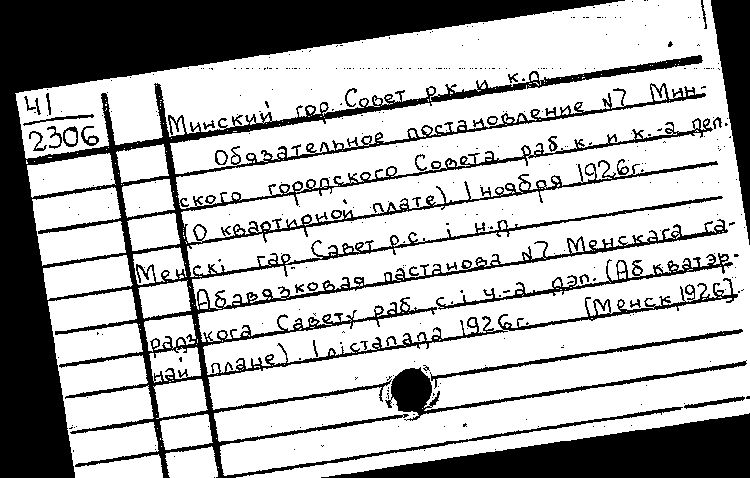 41
2306
Минский гор. Совет р.к. и к.д.
Обязательное постановление №7 Мин-
ского городского Совета раб. к. и к.-а деп.
(О квартирной плате). 1 ноября 1926г.
Менскі гар. Савет р.с. і н.д.
Абавязковая пастанова №7 Менскага га-
радзкога Савету раб. с. і ч.-а. дэп. (Аб кватэр-
най плаце). 1 лістапада 1926г. [Менск, 1926].